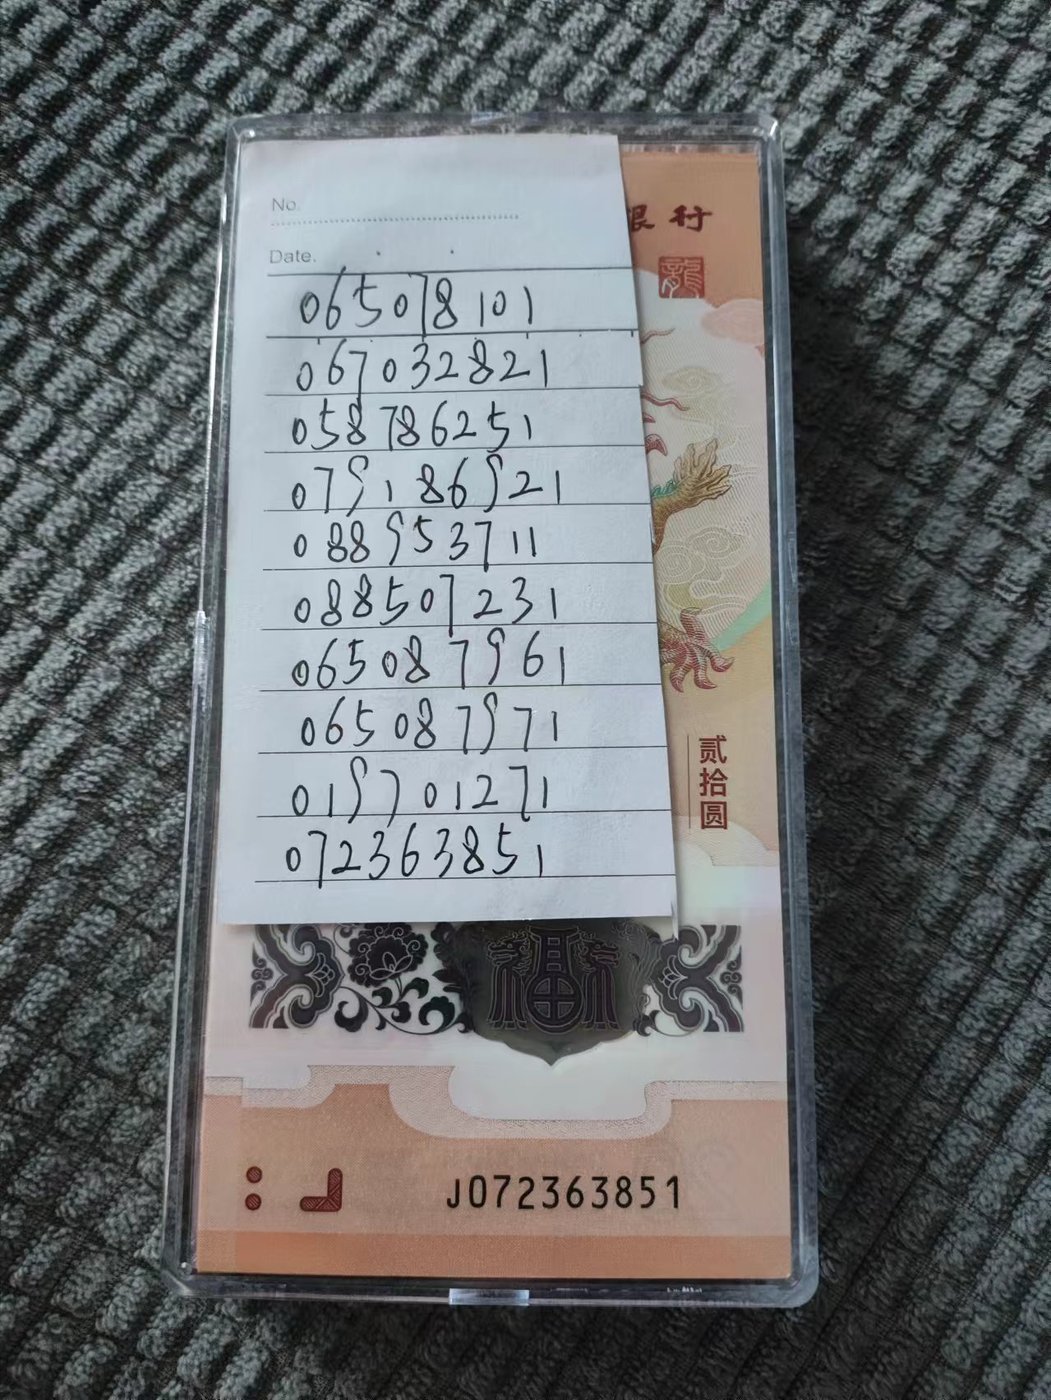 No.
Date.
065078101
067032821
058786251
079186921
088953711
088507231
065087961
065087971
019701271
072363851
银行
龍
贰拾圆
J072363851